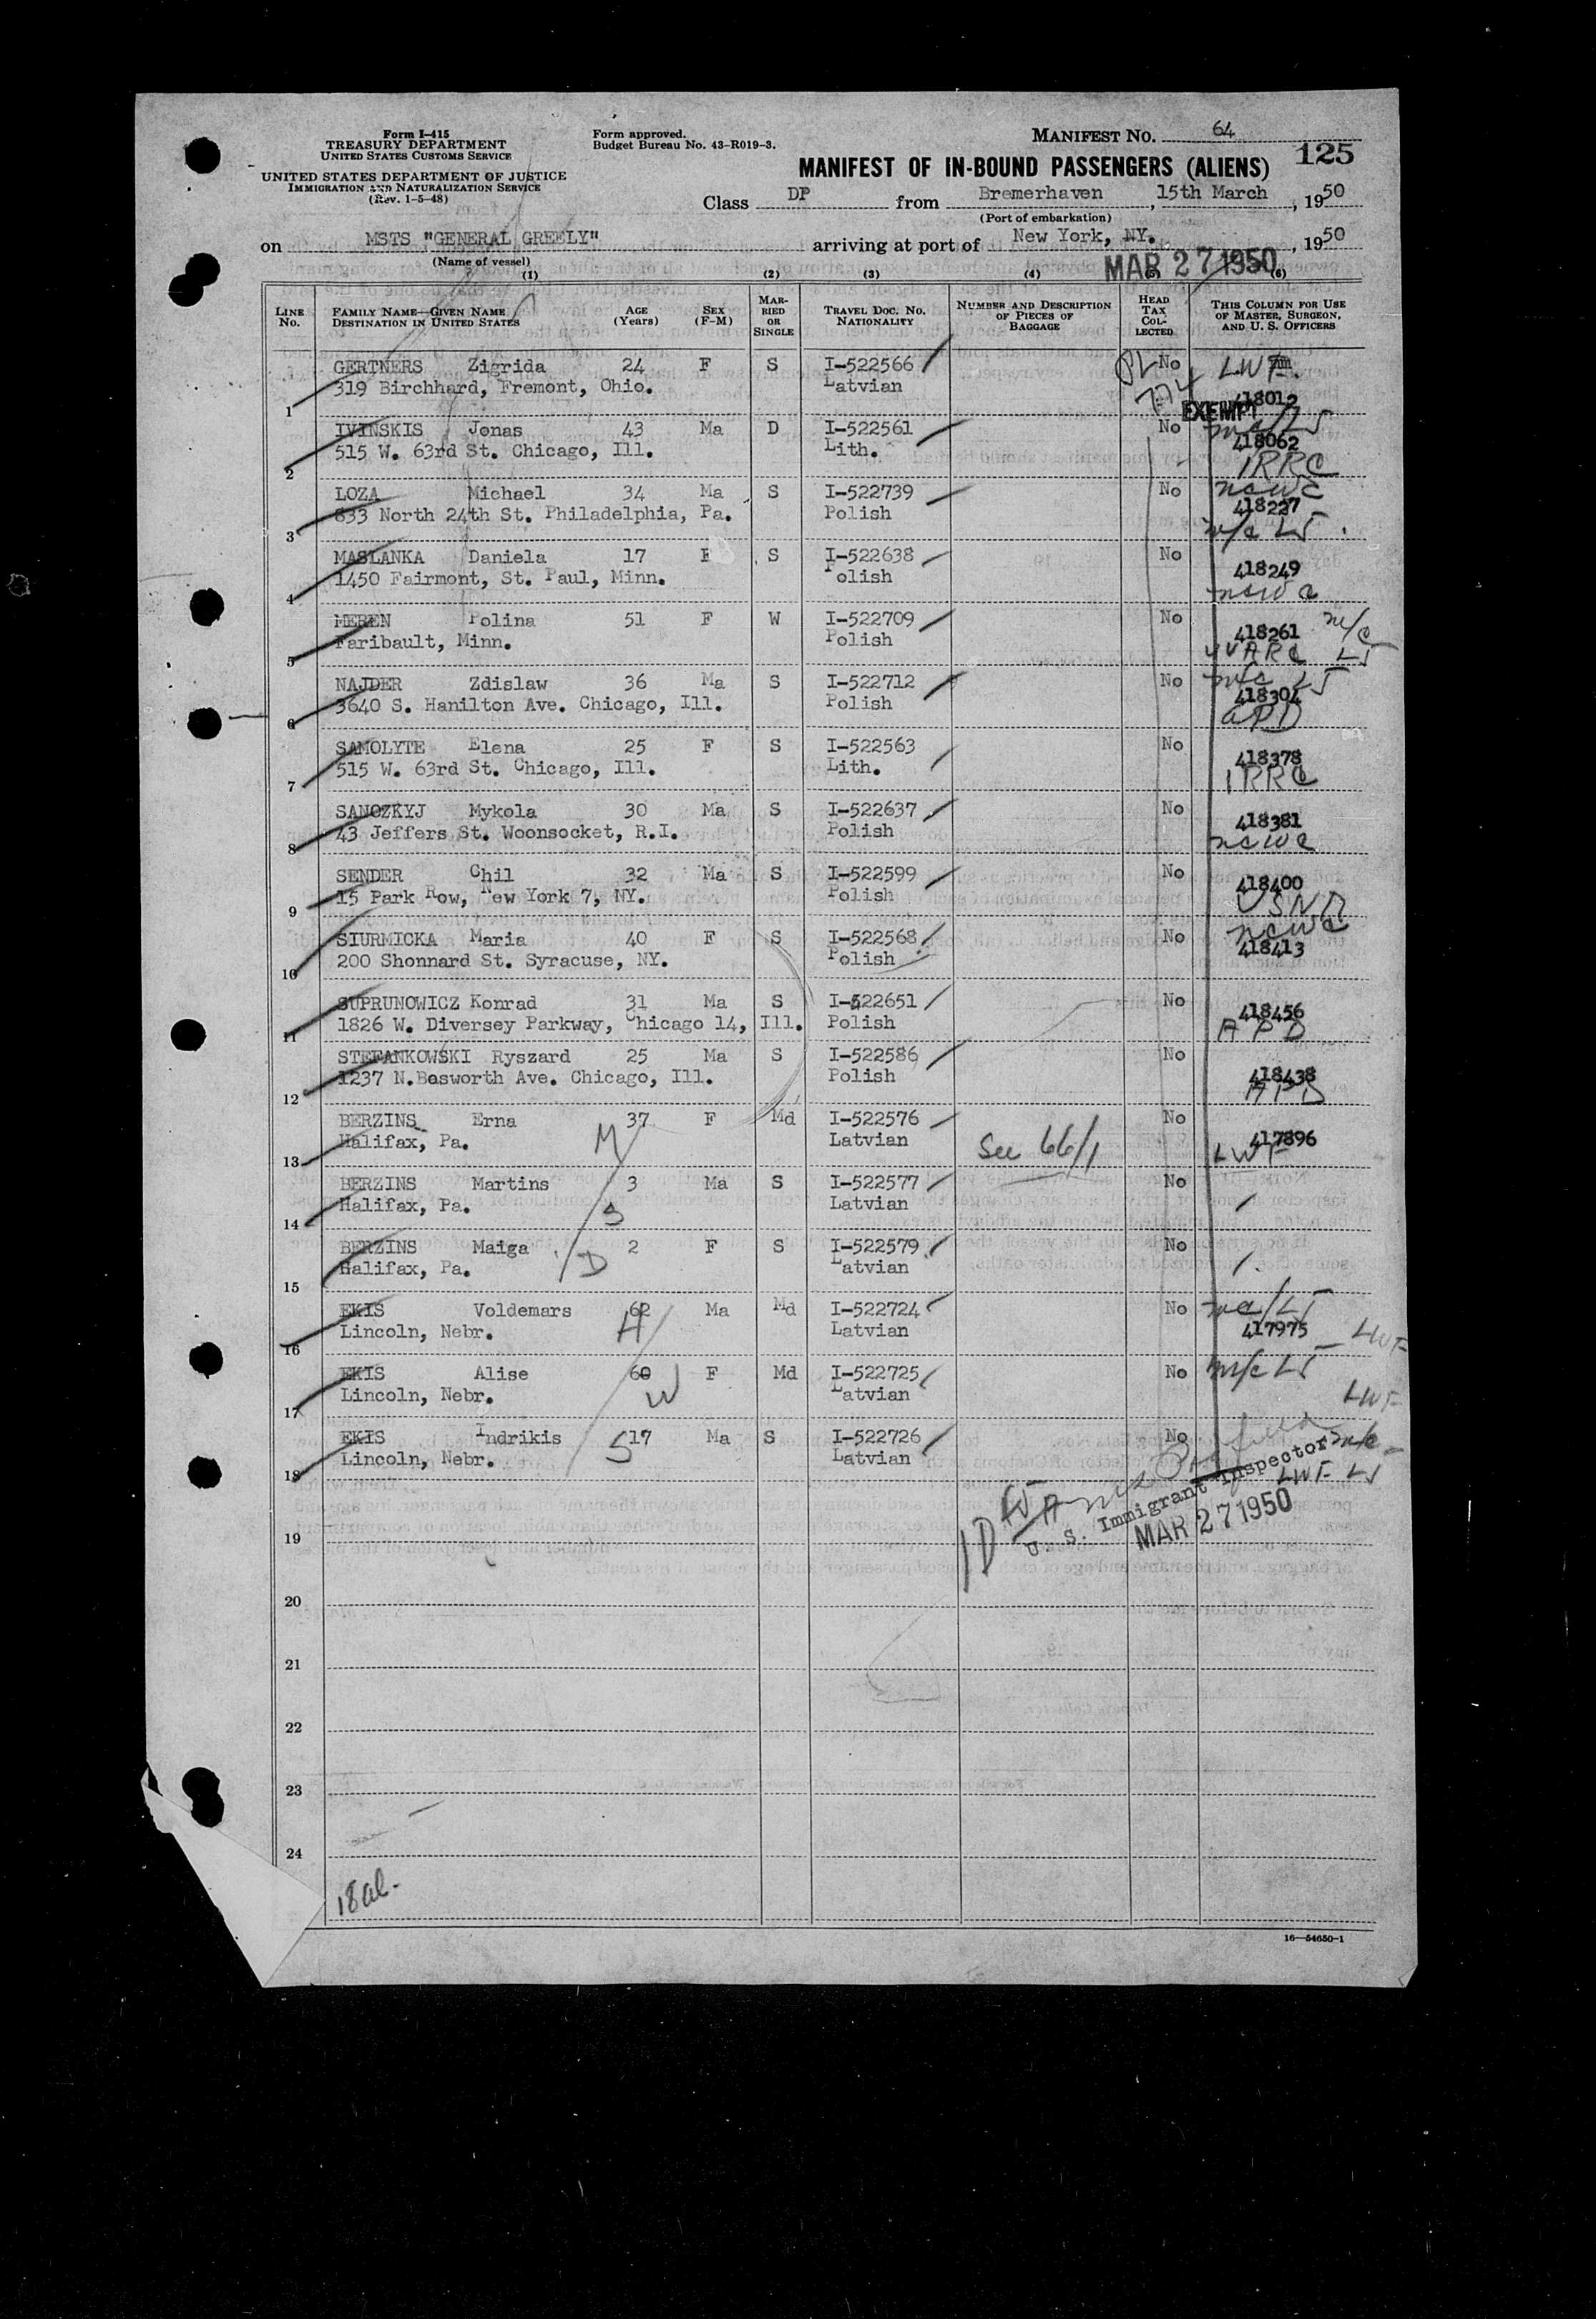 Form I-415
TREASURY DEPARTMENT
UNITED STATES CUSTOMS SERVICE
UNITED STATES DEPARTMENT OF JUSTICE
IMMIGRATION AND NATURALIZATION SERVICE
(Rev. 1-5-48)
Form approved.
Budget Bureau No. 43-R019-3.
MANIFEST NO. 64
125
MANIFEST OF IN-BOUND PASSENGERS (ALIENS)
Class DP from Bremerhaven, 15th March, 1950
(Port of embarkation)
on MSTS "GENERAL GREELY" arriving at port of New York, NY., 1950
(Name of vessel)
MAR 27 1950
(1) (2) (3) (4) (5) (6)
LINE No. FAMILY NAME—GIVEN NAME DESTINATION IN UNITED STATES AGE (Years) SEX (F-M) MARRIED OR SINGLE TRAVEL DOC. NO. NATIONALITY NUMBER AND DESCRIPTION OF PIECES OF BAGGAGE HEAD TAX COLLECTED THIS COLUMN FOR USE OF MASTER, SURGEON, AND U. S. OFFICERS
GERTNERS Zigrida 24 F S I-522566 No LWF
319 Birchhard, Fremont, Ohio. Latvian
1 418012
EXEMPT
IVINSKIS Jonas 43 Ma D I-522561 No
515 W. 63rd St. Chicago, Ill. Lith. 418062
2 IRRC
LOZA Michael 34 Ma S I-522739 No NCWC
833 North 24th St. Philadelphia, Pa. Polish 418227
3 m/c LS
MASLANKA Daniela 17 F S I-522638 No
1450 Fairmont, St. Paul, Minn. Polish 418249
4 NCWC
MEREN Polina 51 F W I-522709 No
Faribault, Minn. Polish 418261 m/c
5 LS
NAJDER Zdislaw 36 Ma S I-522712 No m/c LS
3640 S. Hanilton Ave. Chicago, Ill. Polish 418304
6 APD
SAMOLYTE Elena 25 F S I-522563 No
515 W. 63rd St. Chicago, Ill. Lith. 418378
7 IRRC
SANOZKYJ Mykola 30 Ma S I-522637 No
43 Jeffers St. Woonsocket, R.I. Polish 418381
8 NCWC
SENDER Chil 32 Ma S I-522599 No
15 Park Row, New York 7, NY. Polish 418400
9 USNA
SIURMICKA Maria 40 F S I-522568 No NCWC
200 Shonnard St. Syracuse, NY. Polish 418413
10
SUPRUNOWICZ Konrad 31 Ma S I-522651 No
1826 W. Diversey Parkway, Chicago 14, Ill. Polish 418456
11 APD
STEFANKOWSKI Ryszard 25 Ma S I-522586 No
1237 N.Bosworth Ave. Chicago, Ill. Polish 418438
12 APD
BERZINS Erna 37 F Md I-522576 No
Halifax, Pa. M Latvian See 66/1 417896
13 LWF
BERZINS Martins 3 Ma S I-522577 No
Halifax, Pa. S Latvian
14
BERZINS Maiga 2 F S I-522579 No
Halifax, Pa. D Latvian
15
EKIS Voldemars 62 Ma Md I-522724 No m/c LS
Lincoln, Nebr. H Latvian 417975 LWF
16
EKIS Alise 60 F Md I-522725 No m/c LS
Lincoln, Nebr. W Latvian LWF
17
EKIS Indrikis S 17 Ma S I-522726 No m/c
Lincoln, Nebr. Latvian LWF LS
18
U. S. Immigrant Inspector
MAR 27 1950
19
20
21
22
23
24
18 al.
16—54650-1